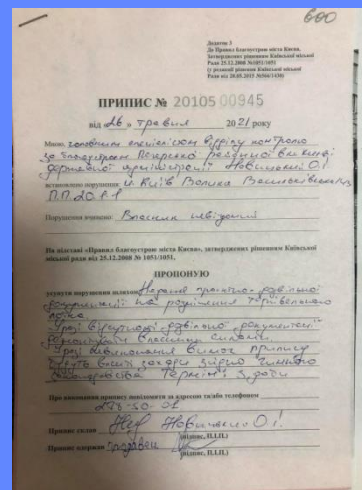 600
Додаток 3
До Правил благоустрою міста Києва,
Затверджених рішенням Київської міської
Ради 25.12.2008 №1051/1051
(у редакції рішення Київської міської
Ради від
ПРИПИС № 20105 00945
від «26» травня 2021 року
Мною, головним спеціалістом відділу контролю
за благоустроєм Печерської районної в м. Києві
державної адміністрації Новицький О.І.
встановлено порушення: м. Київ Велика Васильківська
П.П.20.1.1
Порушення вчинено: Власник невідомий
На підставі «Правил благоустрою міста Києва», затверджених рішенням Київської
міської ради від 25.12.2008 № 1051/1051,
ПРОПОНУЮ
усунути порушення шляхом: Надання дозвільної
документації на розміщення
У разі відсутності дозвільної документації
демонтувати власними силами.
У разі невиконання вимог припису
будуть вжиті заходи згідно чинного
законодавства Термін: 3 доби
Про виконання припису повідомити за адресою та/або телефоном
Припис склав О.І.
(підпис, П.І.П.)
Припис одержав
(підпис, П.І.П.)